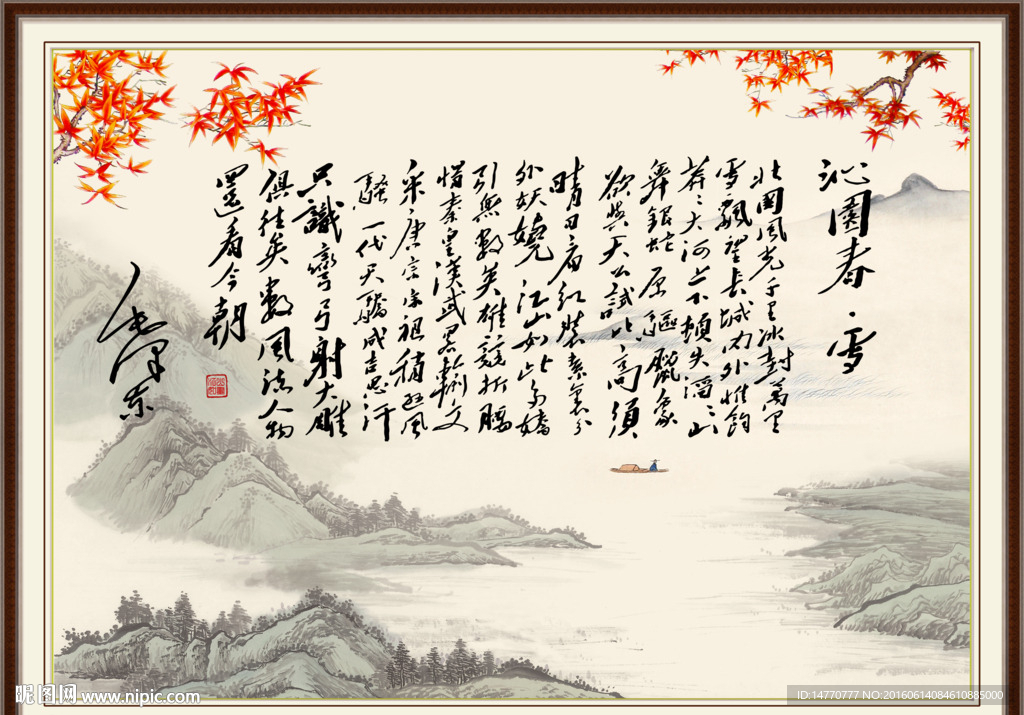 沁園春·雪
北國風光千里冰封萬里
雪飄望長城內外惟餘
莽〻大河上下頓失滔〻山
舞銀蛇原驅臘象
欲與天公試比高須
晴日看紅裝素裹分
外妖嬈江山如此多嬌
引無數英雄競折腰
惜秦皇漢武略輸文
采唐宗宋祖稍遜風
騷一代天驕成吉思汗
只識彎弓射大雕
俱往矣數風流人物
還看今朝
毛澤東
昵图网 www.nipic.com
ID:14770777 NO:20160614084610885000